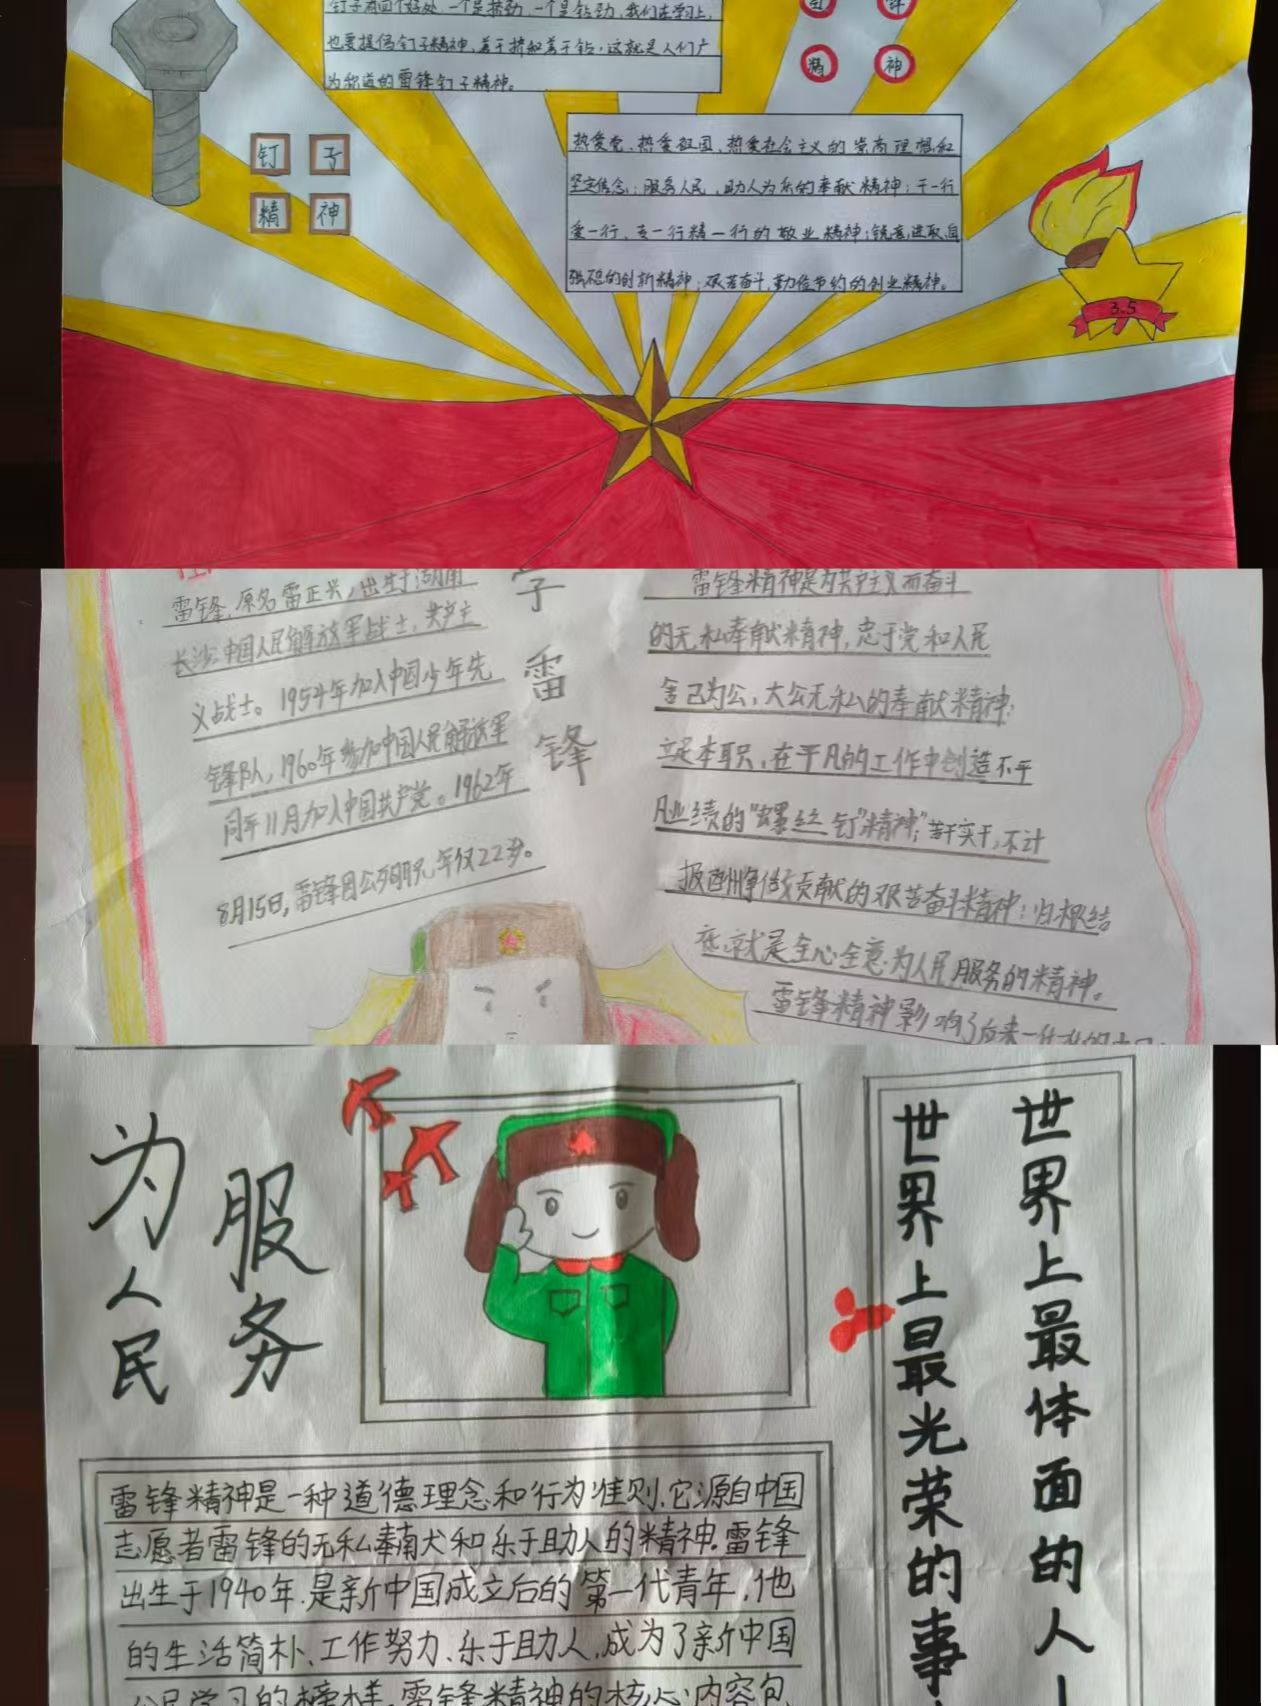 钉子有两个好处，一个是挤劲，一个是钻劲，我们在学习上，
也要提倡钉子精神，善于挤和善于钻，这就是人们广
为称道的雷锋钉子精神。
钉子
精神
钉子
精神
热爱党、热爱祖国、热爱社会主义的崇高理想和
坚定信念；服务人民、助人为乐的奉献精神；干一行
爱一行、专一行精一行的敬业精神；锐意进取、自
强不息的创新精神；艰苦奋斗、勤俭节约的创业精神。
3.5
雷锋，原名雷正兴，出生于湖南
长沙，中国人民解放军战士，共产主
义战士。1954年加入中国少年先
锋队，1960年参加中国人民解放军
同年11月加入中国共产党。1962年
8月15日，雷锋因公殉职，年仅22岁。
学
雷
锋
雷锋精神是为共产主义而奋斗
的无私奉献精神，忠于党和人民
舍己为公，大公无私的奉献精神；
立足本职，在平凡的工作中创造不平
凡业绩的“螺丝钉”精神；苦干实干，不计
报酬，争做贡献的艰苦奋斗精神；归根结
底，就是全心全意为人民服务的精神。
雷锋精神影响了后来一代
为
人
民
服
务
世界上最体面的人
世界上最光荣的事
雷锋精神是一种道德理念和行为准则，它源自中国
志愿者雷锋的无私奉献和乐于助人的精神。雷锋
出生于1940年，是新中国成立后的第一代青年，他
的生活简朴、工作努力、乐于助人，成为了新中国
公民学习的榜样，雷锋精神的核心内容包